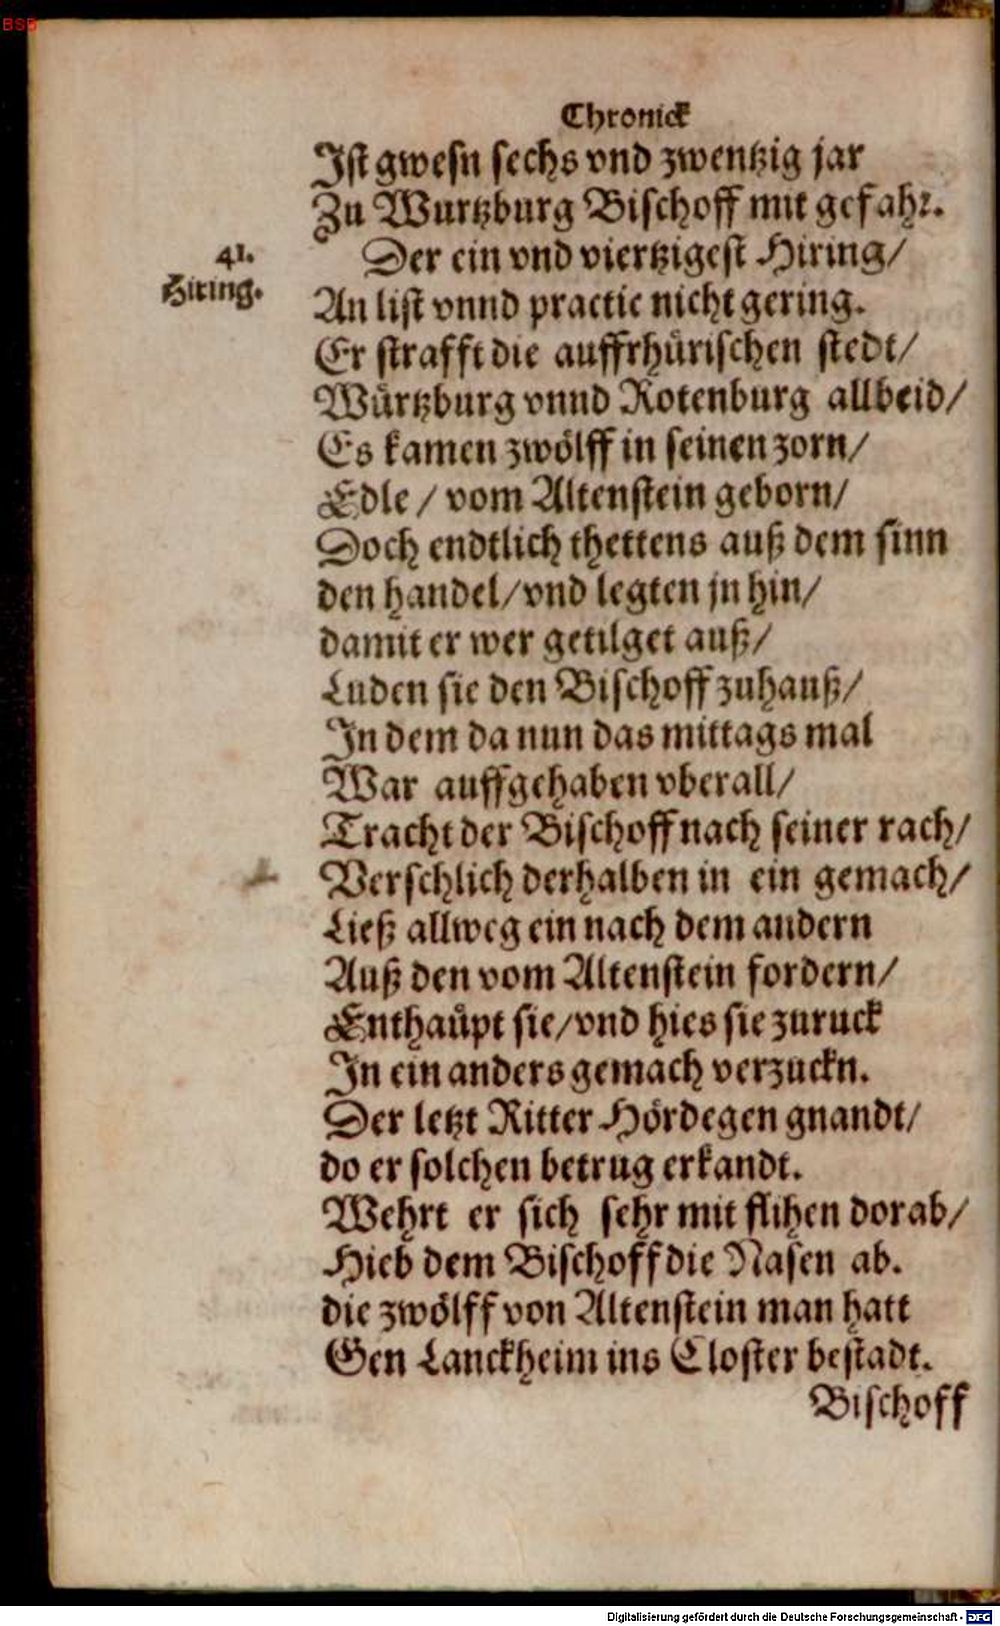 BSB
Chronick
Ist gwesn sechs vnd zwentzig jar
Zu Wurtzburg Bischoff mit gefahr.
41.
Der ein vnd viertzigest Hiring/
Hiring.
An list vnnd practic nicht gering.
Er strafft die auffrhürischen stedt/
Würtzburg vnnd Rotenburg allbeid/
Es kamen zwölff in seinen zorn/
Edle / vom Altenstein geborn/
Doch endtlich thettens auß dem sinn
den handel/vnd legten jn hin/
damit er wer getilget auß/
Luden sie den Bischoff zuhauß/
In dem da nun das mittags mal
War auffgehaben vberall/
Tracht der Bischoff nach seiner rach/
Verschlich derhalben in ein gemach/
Ließ allweg ein nach dem andern
Auß den vom Altenstein fordern/
Enthaüpt sie/vnd hies sie zuruck
In ein anders gemach verzuckn.
Der letzt Ritter Hördegen gnandt/
do er solchen betrug erkandt.
Wehrt er sich sehr mit flihen dorab/
Hieb dem Bischoff die Nasen ab.
die zwölff von Altenstein man hatt
Gen Lanckheim ins Closter bestadt.
Bischoff
Digitalisierung gefördert durch die Deutsche Forschungsgemeinschaft - DFG